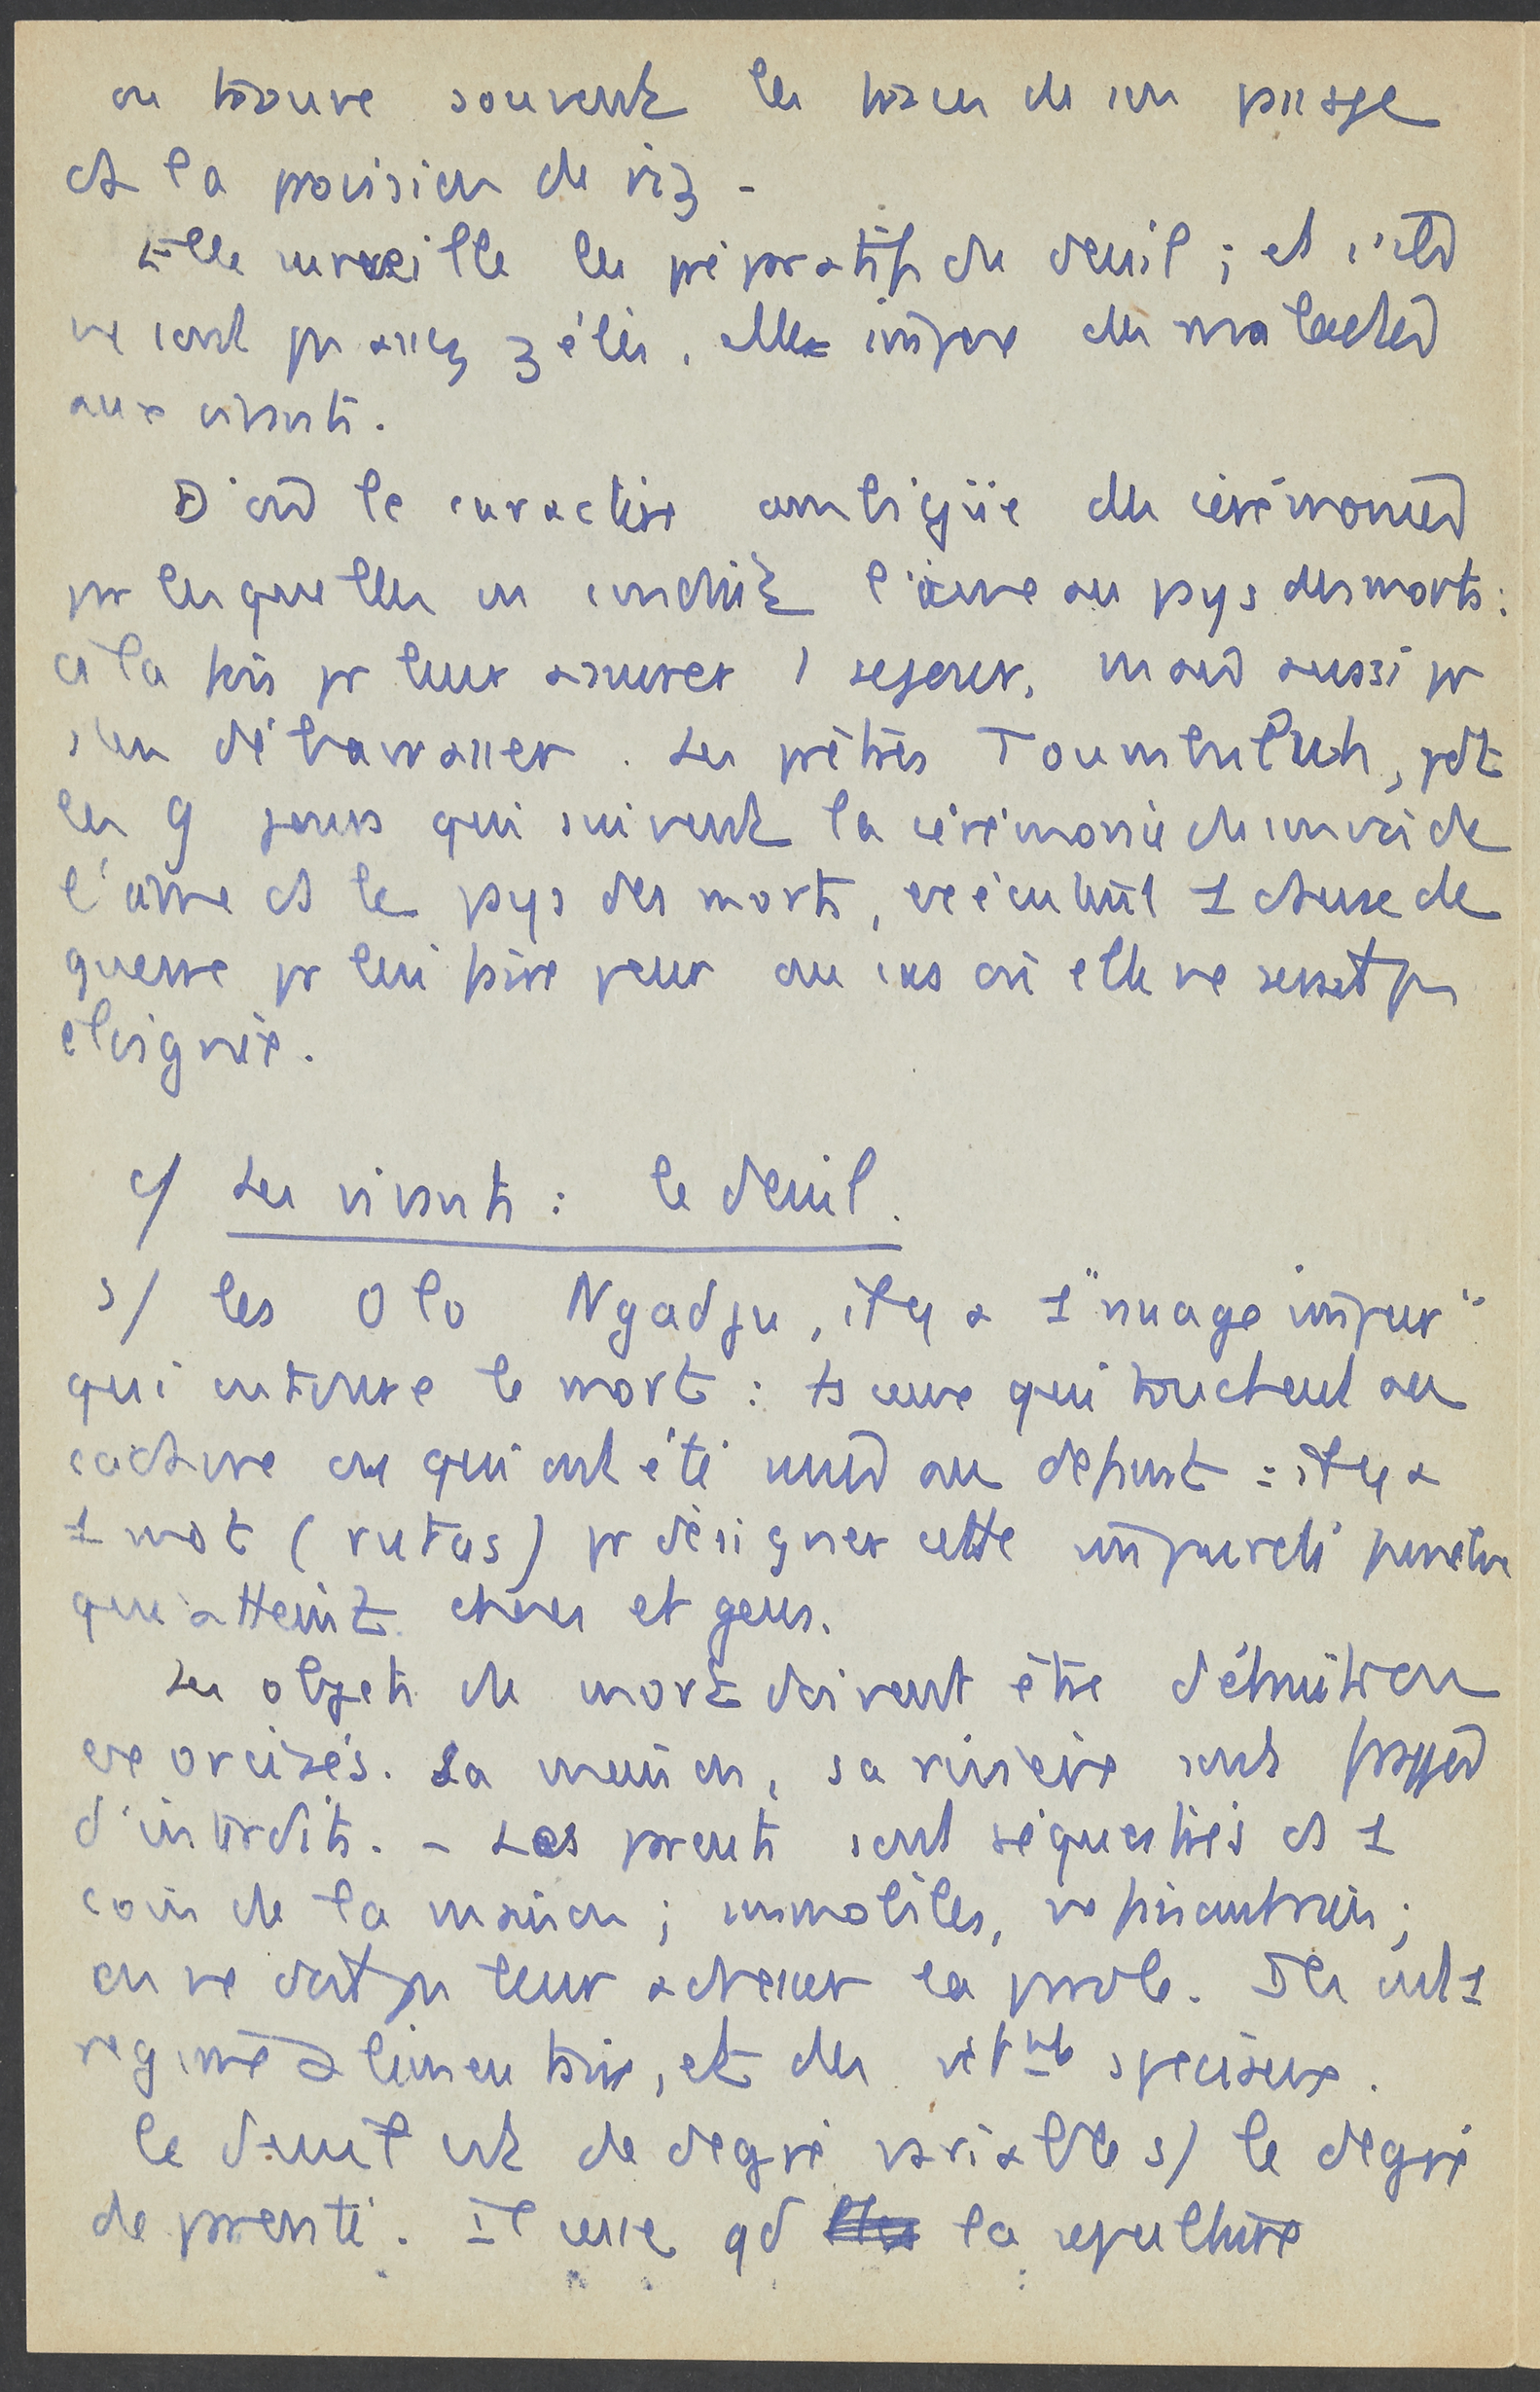 on trouve souvent les traces de son passage
ds la provision de riz -
Elle surveille les préparatifs du deuil ; et s'ils
ne sont pas assez zélés, elle impose des maladies
aux vivants.
D'où le caractère ambigüe des cérémonies
par lesquelles on conduit l'âme au pays des morts :
à la fois pr leur assurer 1 séjour, mais aussi pr
s'en débarrasser. Les prêtres Toumbuluh, pdt
les 9 jours qui suivent la cérémonie du convoi de
l'âme ds le pays des morts, exécutent 1 danse de
guerre pr lui faire peur au cas où elle ne serait pas
éloignée.
c/ Les vivants : le deuil.
s/ les Olo Ngadju, il y a 1 "nuage impur"
qui entoure le mort : ts ceux qui touchent au
cadavre ou qui ont été unis au défunt : il y a
1 mot (rutas) pr désigner cette impureté funèbre
qui atteint choses et gens.
Les objets du mort doivent être détruits ou
exorcisés. Sa maison, sa rivière sont frappés
d'interdits. - Les parents sont séquestrés ds 1
coin de la maison ; immobiles, ne faisant rien ;
on ne doit pas leur adresser la parole. Ils ont 1
régime alimentaire, et des vêtmts spéciaux.
Le deuil est de degré variable s/ le degré
de parenté. Il cesse qd la sépulture